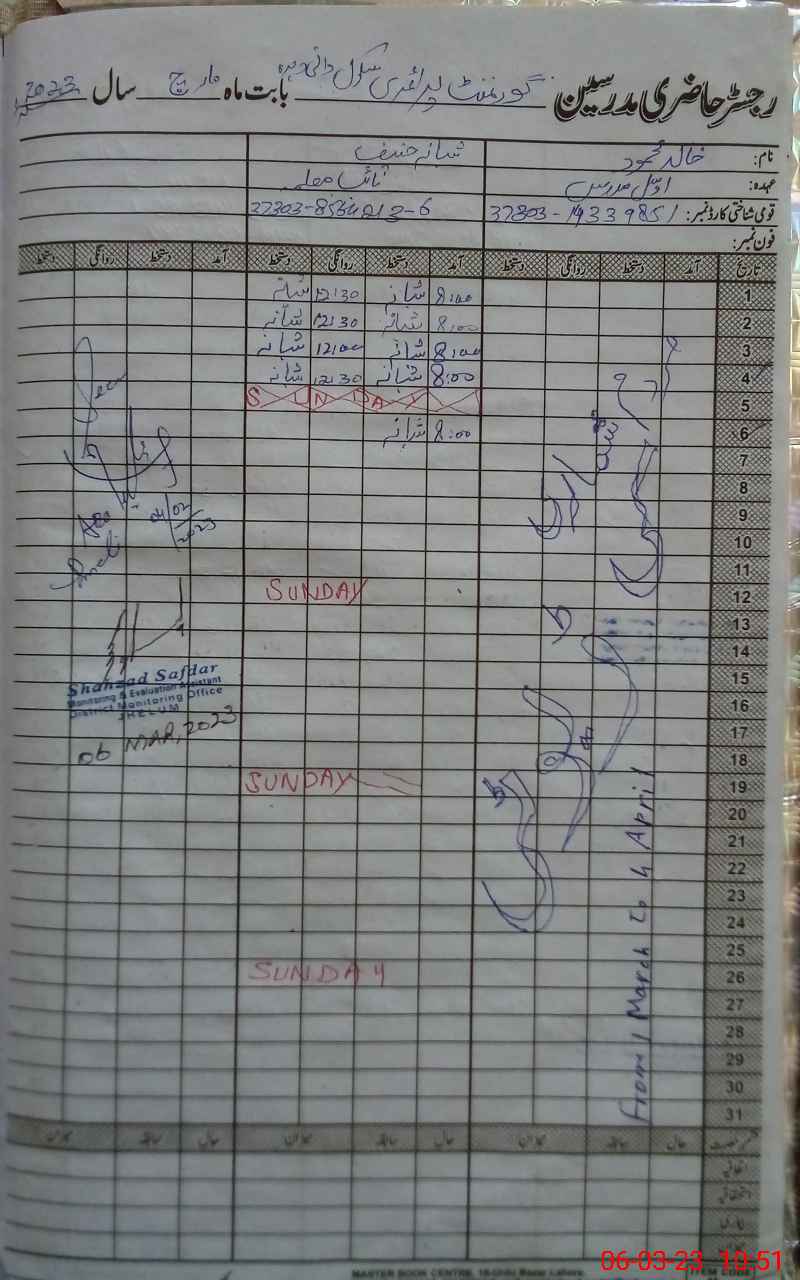 رجسٹر حاضری مدرسین گورنمنٹ پرائمری سکول بابت ماہ مارچ سال 2023
نام: خالد محمود شبانہ حنیف
عہدہ: اول مدرس نائب معلمہ
قومی شناختی کارڈ نمبر:
فون نمبر:
تاریخ آمد دستخط روانگی دستخط آمد دستخط روانگی دستخط آمد دستخط روانگی دستخط
1 8:00 شبانہ 12:30 شبانہ
2 8:00 شبانہ 12:30 شبانہ
3 8:00 شبانہ 12:00 شبانہ
4 8:00 شبانہ 12:30 شبانہ
5 SUNDAY
6 8:00 شبانہ
7
8
9
10
11
12 SUNDAY
13
14
15
16
17
18
19 SUNDAY
20
21
22
23
24
25
26 SUNDAY
27
28
29
30
31
From 1 March to 4 April
04/02/2023
Shahzad Safdar
Monitoring & Evaluation Assistant
District Monitoring Office
JHELUM
06 MAR, 2023
حال سابقہ میزان حال سابقہ میزان حال سابقہ میزان
اتفاقیہ
MASTER BOOK CENTRE
06-03-23 10:51